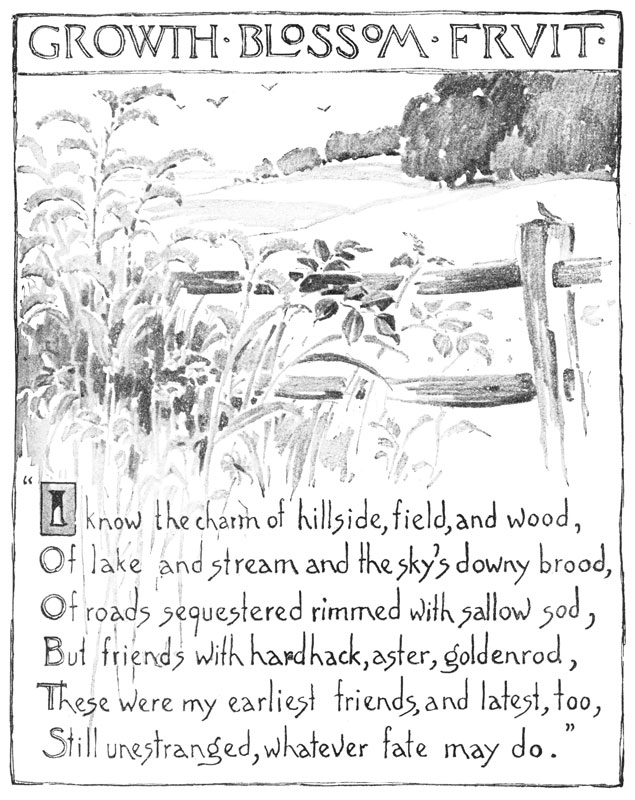 GROWTH · BLOSSOM · FRVIT ·
"I know the charm of hillside, field, and wood,
Of lake and stream and the sky's downy brood,
Of roads sequestered rimmed with sallow sod,
But friends with hardhack, aster, goldenrod,
These were my earliest friends, and latest, too,
Still unestranged, whatever fate may do."